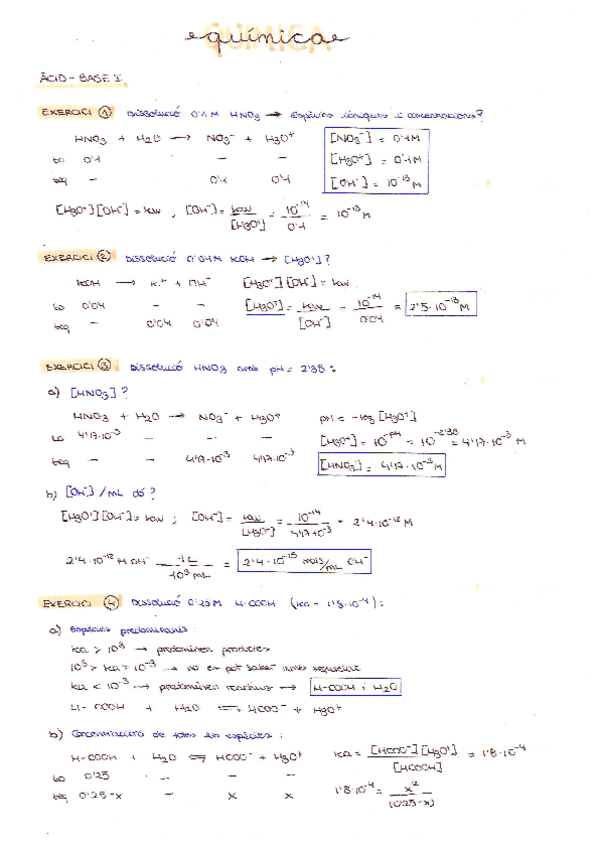 química
ÀCID-BASE I
EXERCICI 1 Dissolució 0'1M HNO3 → Espècies iòniques i concentracions?
HNO3 + H2O → NO3⁻ + H3O⁺ [NO3⁻] = 0'1M
to 0'1 − − [H3O⁺] = 0'1M
teq − 0'1 0'1 [OH⁻] = 10⁻¹³ M
[H3O⁺][OH⁻] = kw ; [OH⁻] = kw / [H3O⁺] = 10⁻¹⁴ / 0'1 = 10⁻¹³ M
EXERCICI 2 Dissolució 0'04M KOH → [H3O⁺]?
KOH → K⁺ + OH⁻ [H3O⁺][OH⁻] = kw
to 0'04 − − [H3O⁺] = kw / [OH⁻] = 10⁻¹⁴ / 0'04 = 2'5·10⁻¹³ M
teq − 0'04 0'04
EXERCICI 3 Dissolució HNO3 amb pH = 2'38 :
a) [HNO3] ?
HNO3 + H2O → NO3⁻ + H3O⁺ pH = -log [H3O⁺]
to 4'17·10⁻³ − − − [H3O⁺] = 10⁻ᵖᴴ = 10⁻²'³⁸ = 4'17·10⁻³ M
teq − − 4'17·10⁻³ 4'17·10⁻³ [HNO3] = 4'17·10⁻³ M
b) [OH⁻] / mL dó ?
[H3O⁺][OH⁻] = kw ; [OH⁻] = kw / [H3O⁺] = 10⁻¹⁴ / 4'17·10⁻³ = 2'4·10⁻¹² M
2'4·10⁻¹² M OH⁻ 1L / 10³ mL = 2'4·10⁻¹⁵ mols/mL OH⁻
EXERCICI 4 Dissolució 0'25M H-COOH (ka = 1'8·10⁻⁴) :
a) Espècies predominants :
ka > 10³ → predominen productes
10³ > ka > 10⁻³ → no es pot saber amb seguretat
ka < 10⁻³ → predominen reactius → H-COOH i H2O
H-COOH + H2O ⇌ HCOO⁻ + H3O⁺
b) Concentració de totes les espècies :
H-COOH + H2O ⇌ HCOO⁻ + H3O⁺ ka = [HCOO⁻][H3O⁺] / [HCOOH] = 1'8·10⁻⁴
to 0'25 − − −
teq 0'25-x − x x 1'8·10⁻⁴ = x² / (0'25-x)